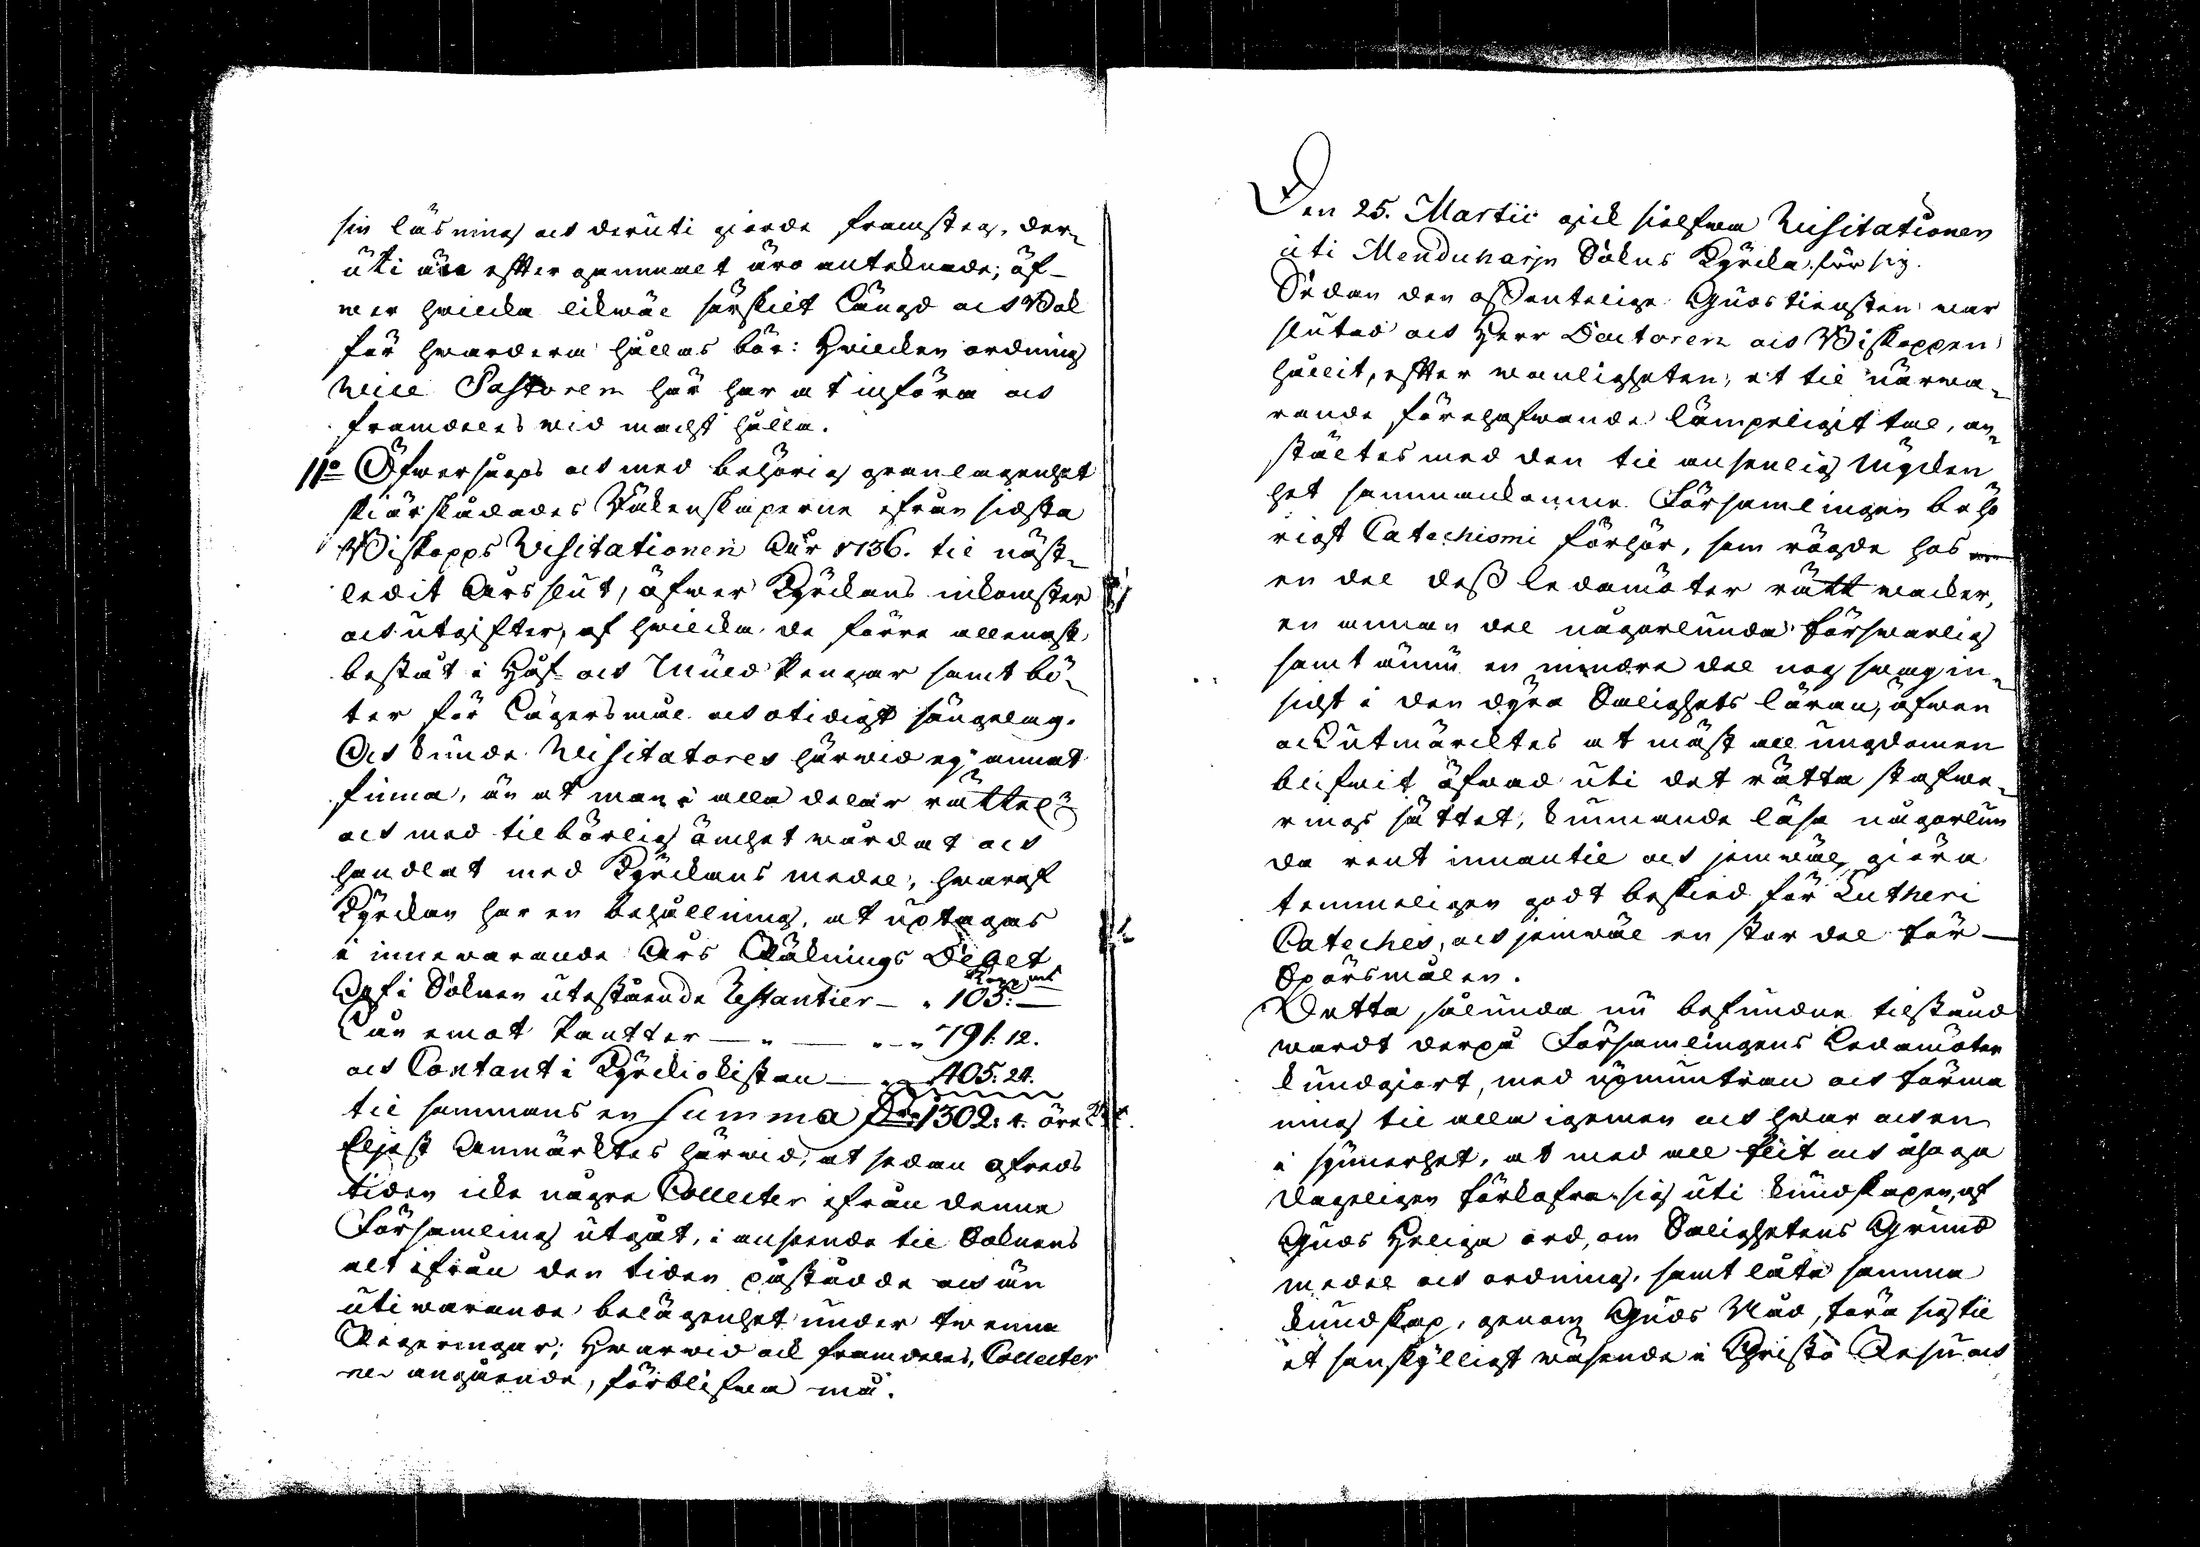 sin läsning och deruti giorde framsteg, der¬
uti äro efter gammalt äro antecknade; öf-
wer hwilcka likwäl särskilt Längd och Bok
för hwardera hållas bör: Hwilcken ordning
Vice Pastoren här har at införa och
framdeles wid macht hålla.
11o Öfwersågs och med behörig granlagenhet
skiärskådades Räkenskaperne ifrån sidsta
Biskopps Visitationen Åhr 1736. til näst¬
ledit Års slut, öfwer Kyrckans inkomster
och utgifter, af hwilcka de förre allenast
bestått i Håf- och Mull Pengar samt bö¬
ter för Lägersmål och otidigt sängelag.
Och kunde Visitatores härwid ej annat
finna, än at man i alla delar rättel:n
och med tilbörlig ömhet wårdat och
handlat med Kyrckans medel, hwaraf
Kyrckan har en behållning, at uptagas
i innewarande Års Räknings Debet
Kopp:mt
Af i Soknen utestående Restantier - " 105: —
Lån emot Pantter — " — " - " 791: 12.
och Contant i Kyrckiokistan — " 405: 24.
til sammans en Summa Dr 1302: 4. öre
Eljest Anmärcktes härwid, at sedan ofreds
tiden icke någre Collecter ifrån denna
Församling utgåt, i anseende til Soknens
alt ifrån den tiden påstådde och än
utiwarande belägenhet under twenne
Regeringar; Hwarwid ock framdeles, Collecter
ne angående, förblifwa må.
Den 25. Martii gick sielfwa Visitationen
uti Menduharju Sokns Kyrcka för sig.
Sedan den offentelige Gudstiensten war
slutad och Herr Doctoren och Biskoppen
hållit, efter wanligheten, et til närwa¬
rande förehafwande lämpeligit tal, an¬
stältes med den til ansenlig myckin
het sammankomne Församlingen behö
rigt Catechismi förhör, som rögde hos
en del dess ledamöter rätt wacker,
en annan del någorlunda förswarlig
samt ännu en mindre del nog swag in¬
sicht i den dyra Salighets läran, äfwen
ock utmärcktes at mäst all ungdomen
blifwit öfwad uti det rätta stafwe¬
rings sättet, kunnande läsa någorlun
da rent innantil och jemwäl giöra
temmeligen godt besked för Lutheri
Cateches, och jemwäl en stor del för
Spörsmålen.
Detta sålunda nu befundne tilstånd
wardt derpå Församlingens Ledamöter
kundgiort, med upmuntran och förma
ning til alla igemen och hwar och en
i synnerhet, at med all flit och åhoga
dageligen förkofra sig uti kundskapen, af
Guds Heliga ord, om Salighetens Grund
medel och ordning, samt låta samma
kundskap, genom Guds Nåd, föra sig til
et sanskylligt wäsende i Christo Jesu och